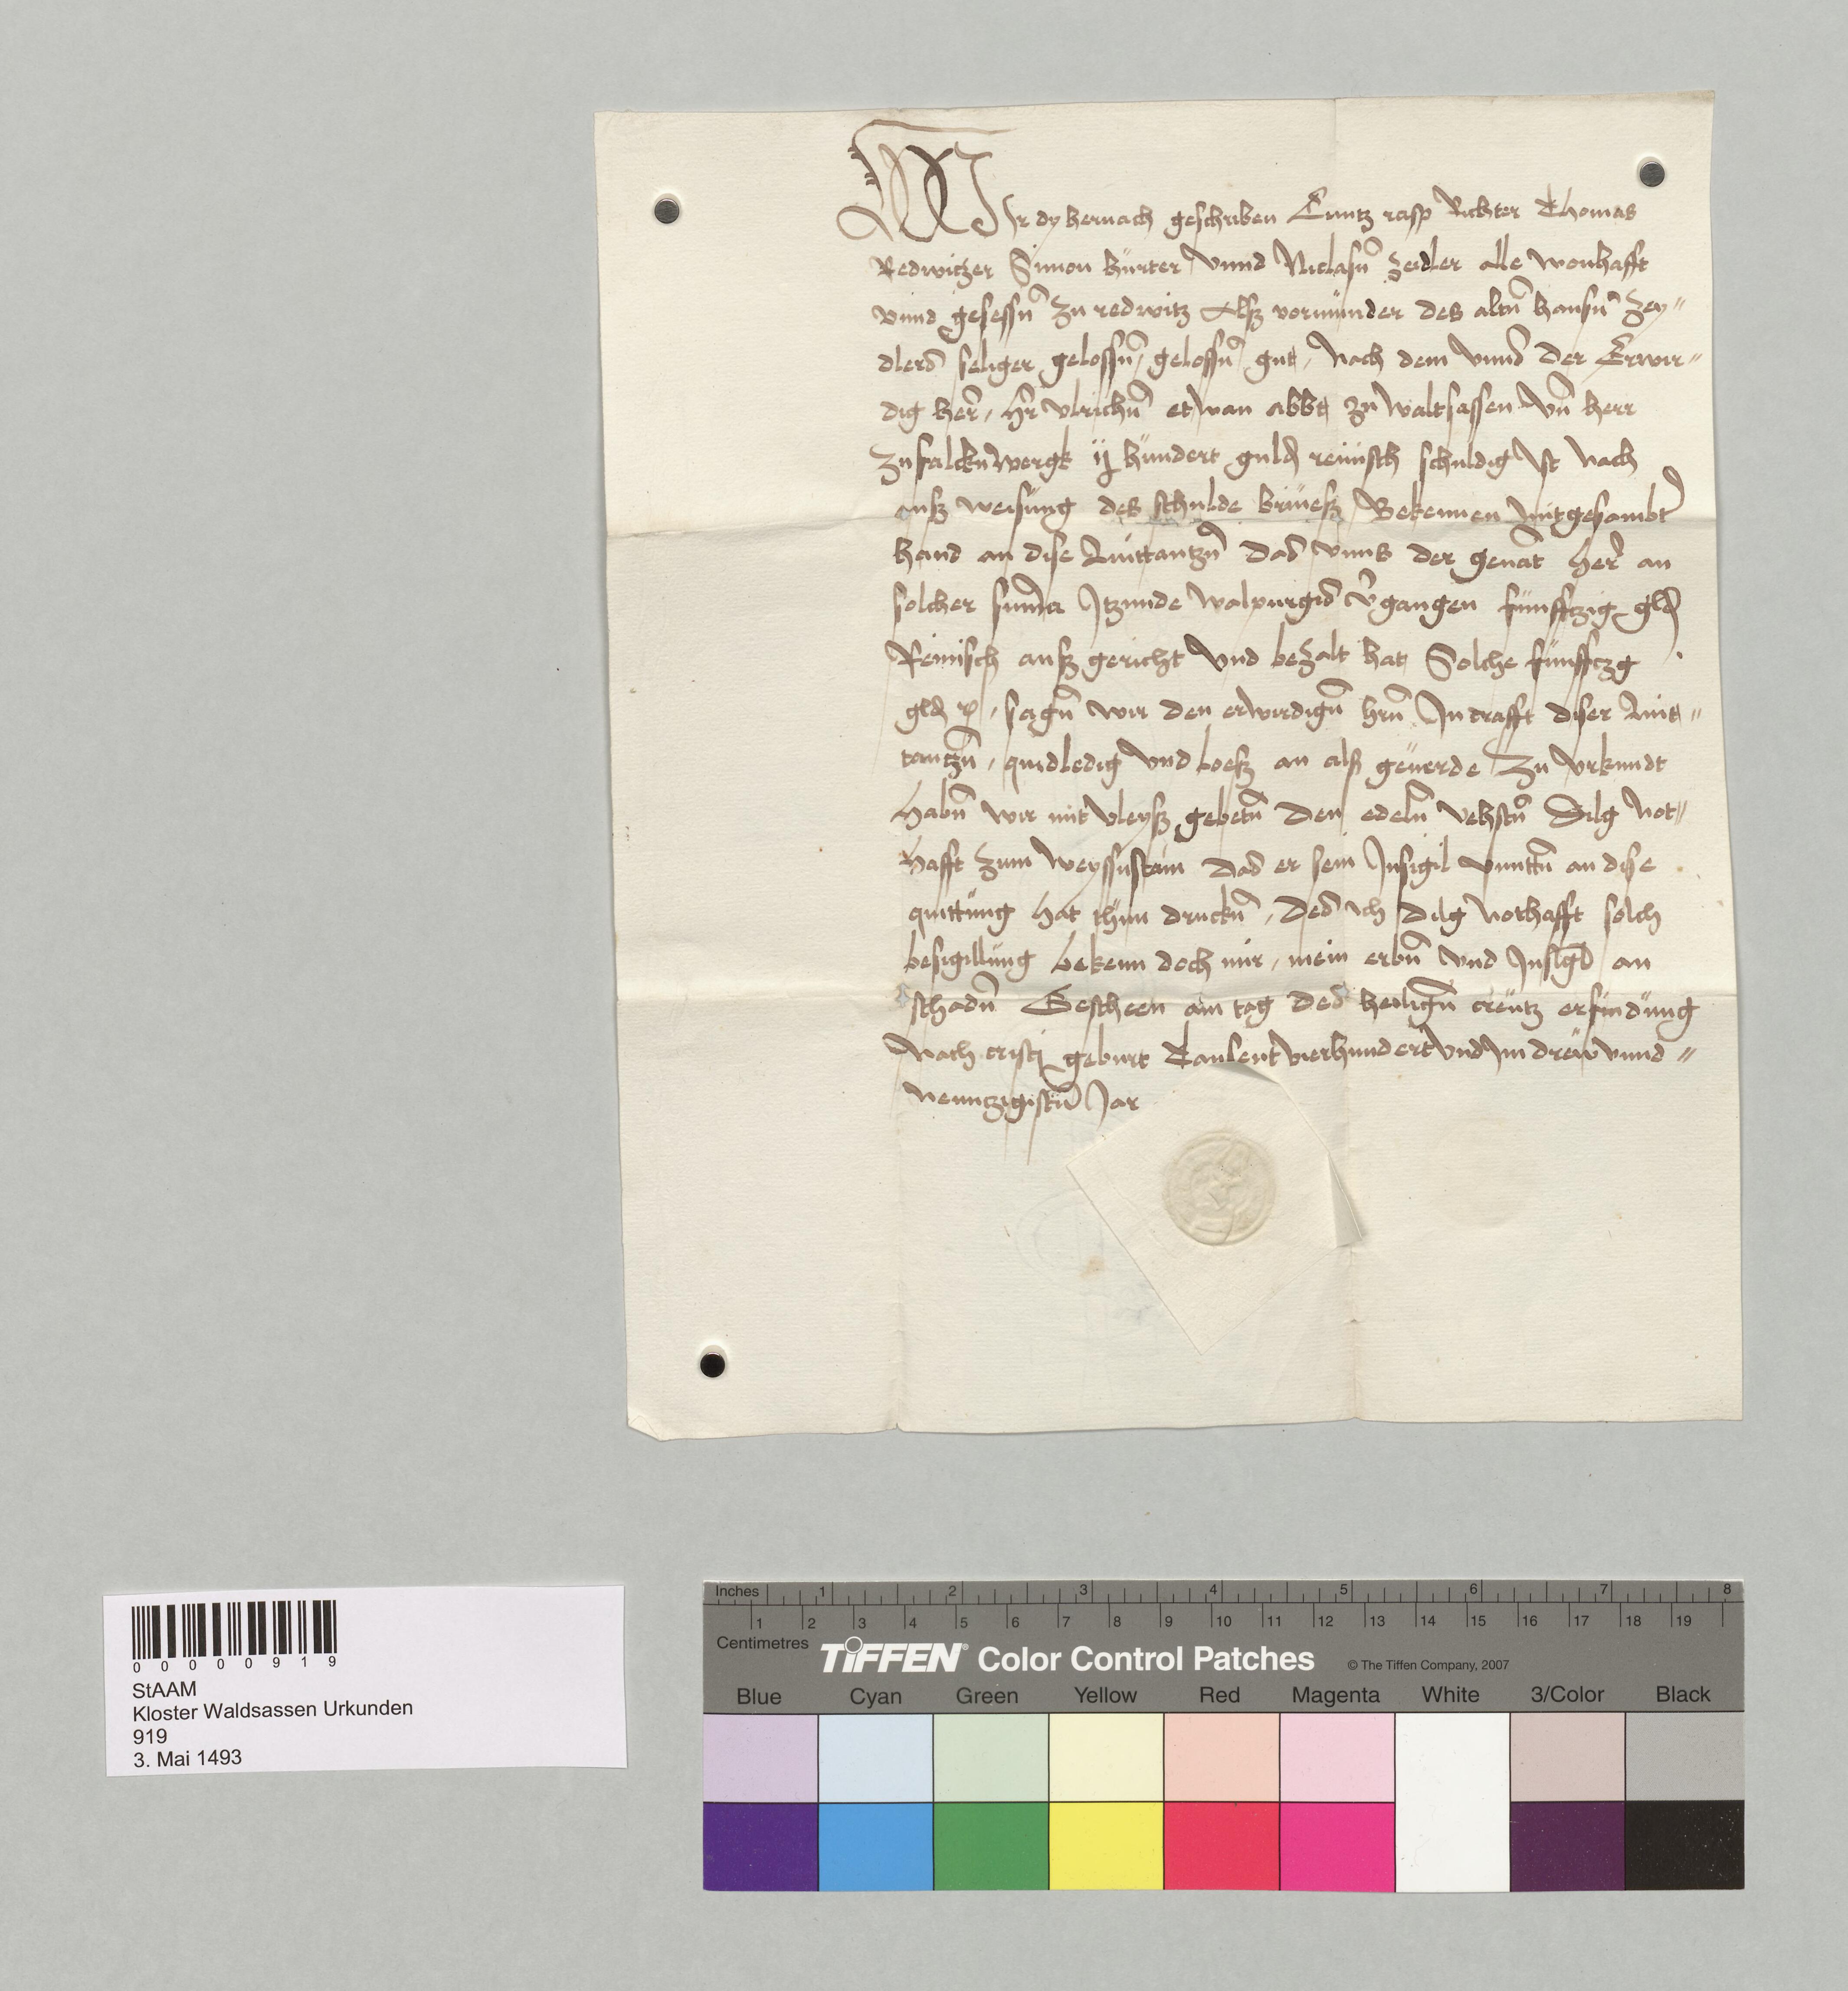 WIr dy hernach geschriben Cuntz rasp Richter Thomas
Redwitzer Simon hürter vnnd Niclasn̄ zeidler alle wonhafft
vnnd gesessn̄ zu redwitz Alß vormünder des altn̄ hansn̄ Zey„
dlers seliger gelossn̄ gelossn̄ gut, Nach dem vnnd der Erwir„
dig her̄, hr̄ vlrichn̄ etwan abbt zu Waltsassen vn̄ herr
zu falcknwergk ij hundert guld reinisch schuldig Ist Nach
auß weisung des schulde briueß Bekennen mit gesambt̄
hand an dise Quittantzn̄ Das vnns der genāt her̄ an
solcher sum̄a Itzunde Walpurgis v̄gangen fünfftzig gld
Reinisch auß gericht vnd bezalt hat Solche fünfftzg
gld r, sagn̄ wir den erwirdign̄ hrn̄ In crafft diser Quit„
tantzn̄, quid ledig vnd loeß an alß geuerde Zu vrkundt
habn̄ wir mit vleyß gebetn̄ Den edeln̄ vehstn̄ Dilg Not„
hafft zum weyssnstain Das er sein Insigil vnnttn̄ an dise
quittung hat thun druckn̄, Des Ich Dilg Nothafft solch
besigillung bekenn doch mir, mein erbn̄ vnd Insigl an
schadn̄ Gescheen am tag des heilign̄ creutz erfindung
Nach cristj geburt Tausent vierhundert vnd Im drew vnnd „
Neuntzigistn̄ Jar
0 0 0 0 0 9 1 9
StAAM
Kloster Waldsassen Urkunden
919
3. Mai 1493
Inches 1 2 3 4 5 6 7 8
1 2 3 4 5 6 7 8 9 10 11 12 13 14 15 16 17 18 19
Centimetres
TIFFEN® Color Control Patches © The Tiffen Company, 2007
Blue Cyan Green Yellow Red Magenta White 3/Color Black